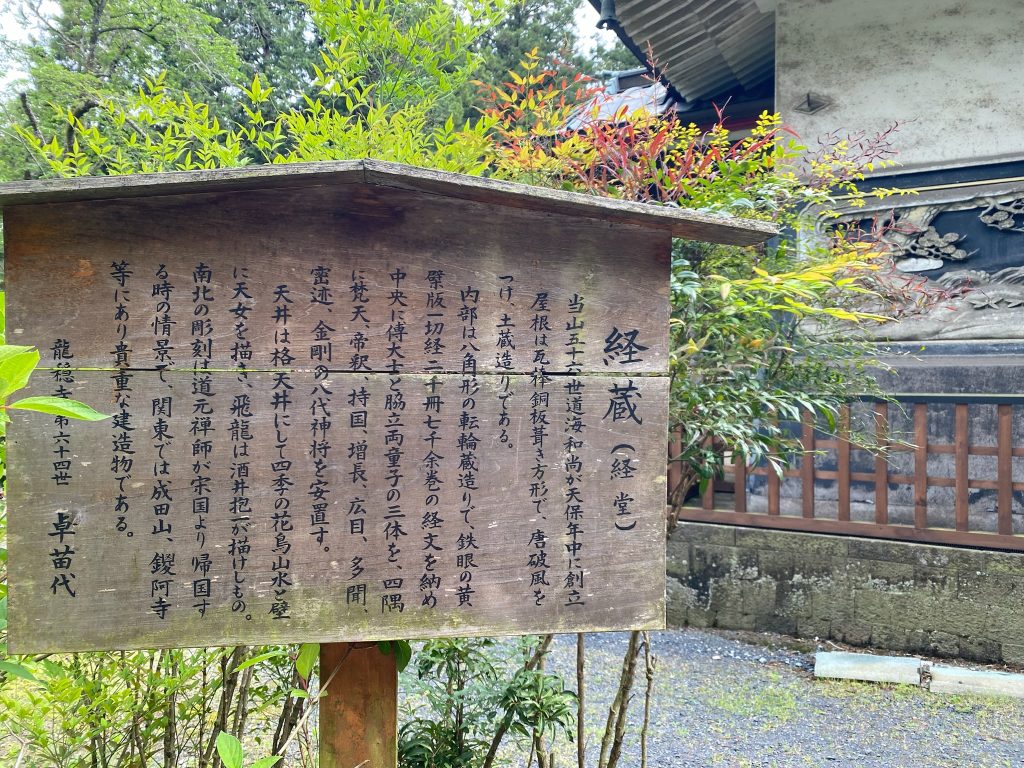 経蔵(経堂)
当山五十六世道海和尚が天保年中に創立
屋根は瓦棒銅板葺き方形で、唐破風を
つけ、土蔵造りである。
内部は八角形の転輪蔵造りで、鉄眼の黄
檗版一切経二千冊七千余巻の経文を納め
中央に傅大士と脇立両童子の三体を、四隅
に梵天、帝釈、持国、増長、広目、多聞、
密迹、金剛の八代神将を安置す。
天井は格天井にして四季の花鳥山水と壁
に天女を描き、飛龍は酒井抱一が描けしもの。
南北の彫刻は道元禅師が宋国より帰国す
る時の情景で、関東では成田山、鑁阿寺
等にあり貴重な建造物である。
龍穏寺第六十四世 卓苗代